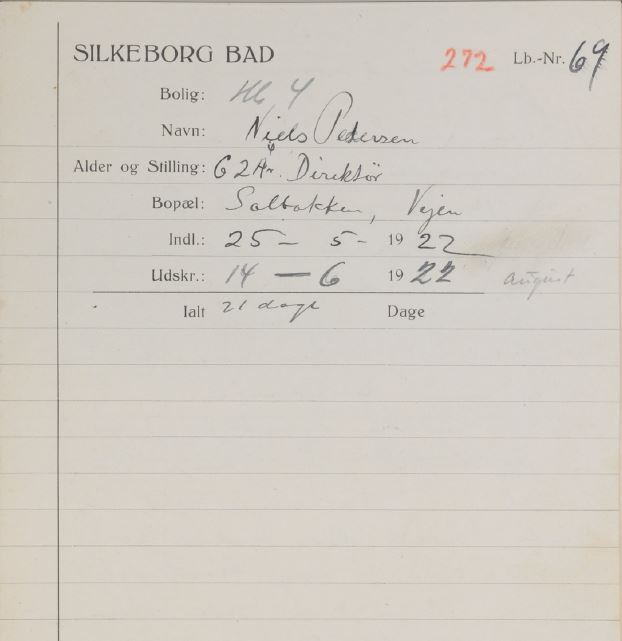 SILKEBORG BAD 272 Lb.-Nr. 69
Bolig: H6 4
Navn: Niels Pedersen
Alder og Stilling: 62 År. Direktör
Bopæl: Solbakken, Vejen
Indl.: 25 - 5 - 19 22
Udskr.: 14 - 6 19 22 august
Ialt 21 dage Dage